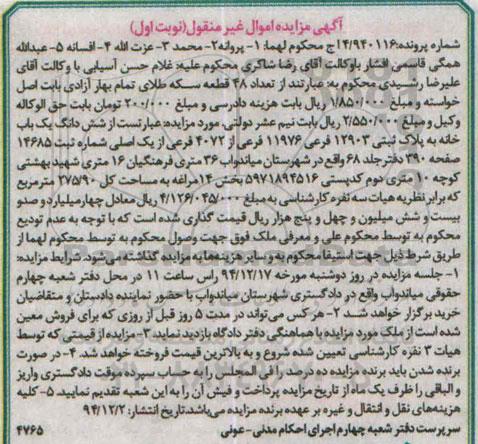 آگهی مزایده اموال غیر منقول(نوبت اول)
شماره پرونده:۴/۹۴۰۱۱۶اج محکوم لهما: ۱- پروانه۲- محمد ۳- عزت الله ۴- افسانه ۵- عبدالله
همگی قاسمی افشار باوکالت آقای رضا شاکری محکوم علیه: غلام حسن آسیابی با وکالت آقای
علیرضا رشیدی محکوم به: عبارتند از تعداد ۴۸ قطعه سکه طلای تمام بهار آزادی بابت اصل
خواسته و مبلغ ۱/۸۵۰/۰۰۰ ریال بابت هزینه دادرسی و مبلغ ۲۰۰/۰۰۰ تومان بابت حق الوکاله
وکیل و مبلغ ۲/۵۵۰/۰۰۰ ریال بابت نیم عشر دولتی. مورد مزایده: عبارتست از شش دانگ یک باب
خانه به پلاک ثبتی ۱۲۹۰۳ فرعی ۱۱۹۷۶ فرعی از ۴۰۷۲ فرعی از یک اصلی شماره ثبت ۱۴۶۸۵
صفحه ۳۹۰ دفتر جلد ۶۸ واقع در شهرستان میاندواب ۳۶ متری فرهنگیان ۱۶ متری شهید بهشتی
کوچه ۱۰ متری دوم کدپستی ۵۹۷۱۸۹۴۵۱۶ بخش ۱۴مراغه به مساحت کل ۲۷۵/۹۰ مترمربع
که برابر نظریه هیات سه نفره کارشناسی به مبلغ ۴/۱۲۶/۰۴۵/۰۰۰ ریال معادل چهارمیلیارد و صدو
بیست و شش میلیون و چهل و پنج هزار ریال قیمت گذاری شده است که با توجه به عدم تودیع
محکوم به توسط محکوم علی و معرفی ملک فوق جهت وصول محکوم به توسط محکوم لهما از
طریق شرط ذیل جهت استیفا محکوم به و سایر هزینه‌ها به مزایده گذاشته می‌شود. شرایط مزایده:
۱- جلسه مزایده در روز دوشنبه مورخه ۹۴/۱۲/۱۷ راس ساعت ۱۱ در محل دفتر شعبه چهارم
حقوقی میاندواب واقع در دادگستری شهرستان میاندواب با حضور نماینده دادستان و متقاضیان
خرید برگزار خواهد شد ۲- هر کس می‌تواند در مدت ۵ روز قبل از روزی که برای فروش معین
شده است از ملک مورد مزایده با هماهنگی دفتر دادگاه بازدید نماید ۳- مزایده از قیمتی که توسط
هیات ۳ نفره کارشناسی تعیین شده شروع و به بالاترین قیمت فروخته خواهد شد. ۴- در صورت
برنده شدن باید برنده مزایده ده درصد را فی المجلس را به حساب سپرده موقت دادگستری واریز
و الباقی را ظرف یک ماه از تاریخ مزایده پرداخت و فیش آن را به این شعبه تقدیم نمایید ۵- کلیه
هزینه‌های نقل و انتقال و غیره بر عهده برنده مزایده می‌باشد.تاریخ انتشار: ۹۴/۱۲/۲
سرپرست دفتر شعبه چهارم اجرای احکام مدنی-عونی ۴۷۶۵